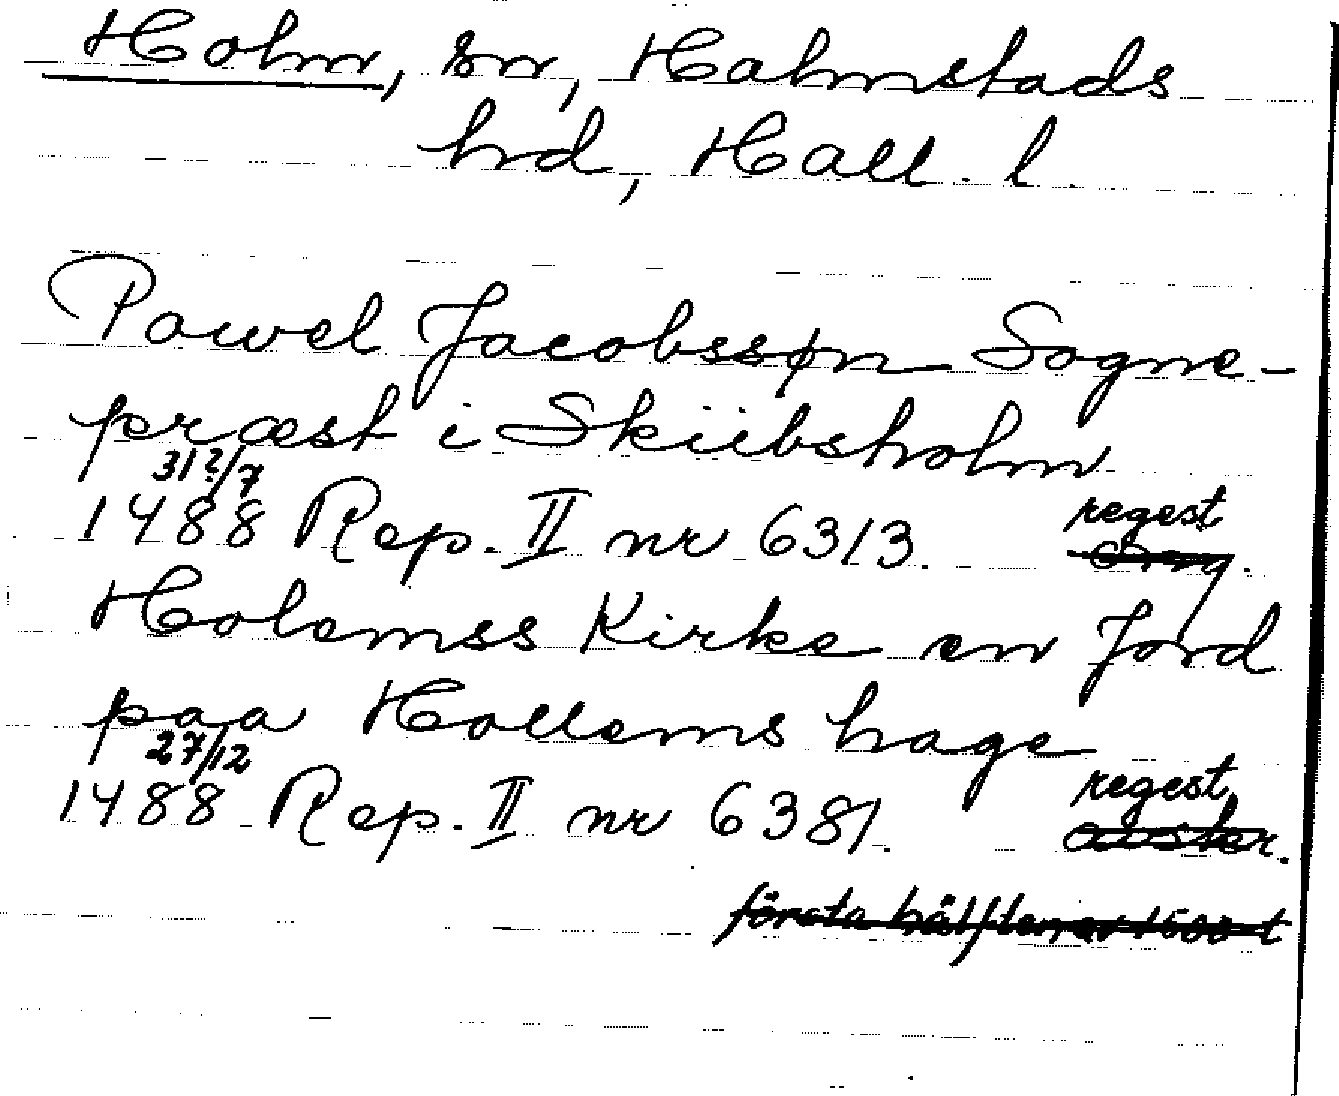 Holm, sn, Halmstads
hrd, Hall. l.
Pawel Jacobssøn Sogne-
præst i Skiibsholm
31?/7
1488 Rep. II nr 6313. regest
Orig.
Holemss Kirke en Jord
paa Hollems hage
27/12
1488 Rep. II nr 6381. regest
avskr.
första hälften av 1500 t